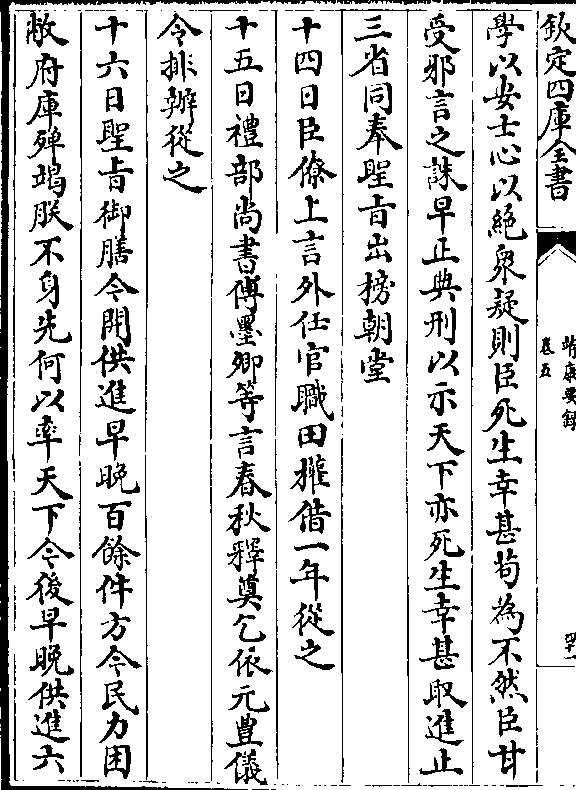 欽定四庫全書
靖康要録
卷五
學以安士心以絶衆疑則臣死生幸甚茍為不然臣甘
受邪言之誅早正典刑以示天下亦死生幸甚取進止
三省同奉聖㫖出榜朝堂
十四日臣僚上言外任官職田權借一年從之
十五日禮部尚書傅墨卿等言春秋釋奠乞依元豊儀
令排辦從之
十六日聖㫖御膳令開供進早晚百餘件方今民力困
敝府庫殫竭朕不身先何以率天下今後早晚供進六